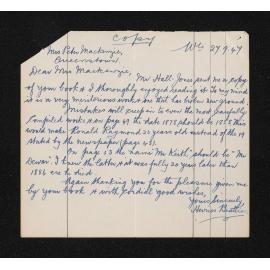 Copy
27.9.49
Mrs Peter Mackenzie,
Queenstown.
Dear Mrs Mackenzie,
Mr Hall-Jones sent me a copy
of your book & I thoroughly enjoyed reading it. To my mind
it is a very meritorious work & one that has broken new ground.
Mistakes will creep in to even the most carefully
compiled works & on page 49 the date 1878 should be 1858. This
would make Ronald Raymond 22 years old instead of the
stated by the newspaper (page 65).
On page 53 the name 'Mr Keith' should be 'Mr
Dewar'. I knew the latter & it was fully 20 years later than
1886 ere he died.
Again thanking you for the pleasure given me
by your book & with cordial good wishes,
Yours sincerely
Herries Beattie